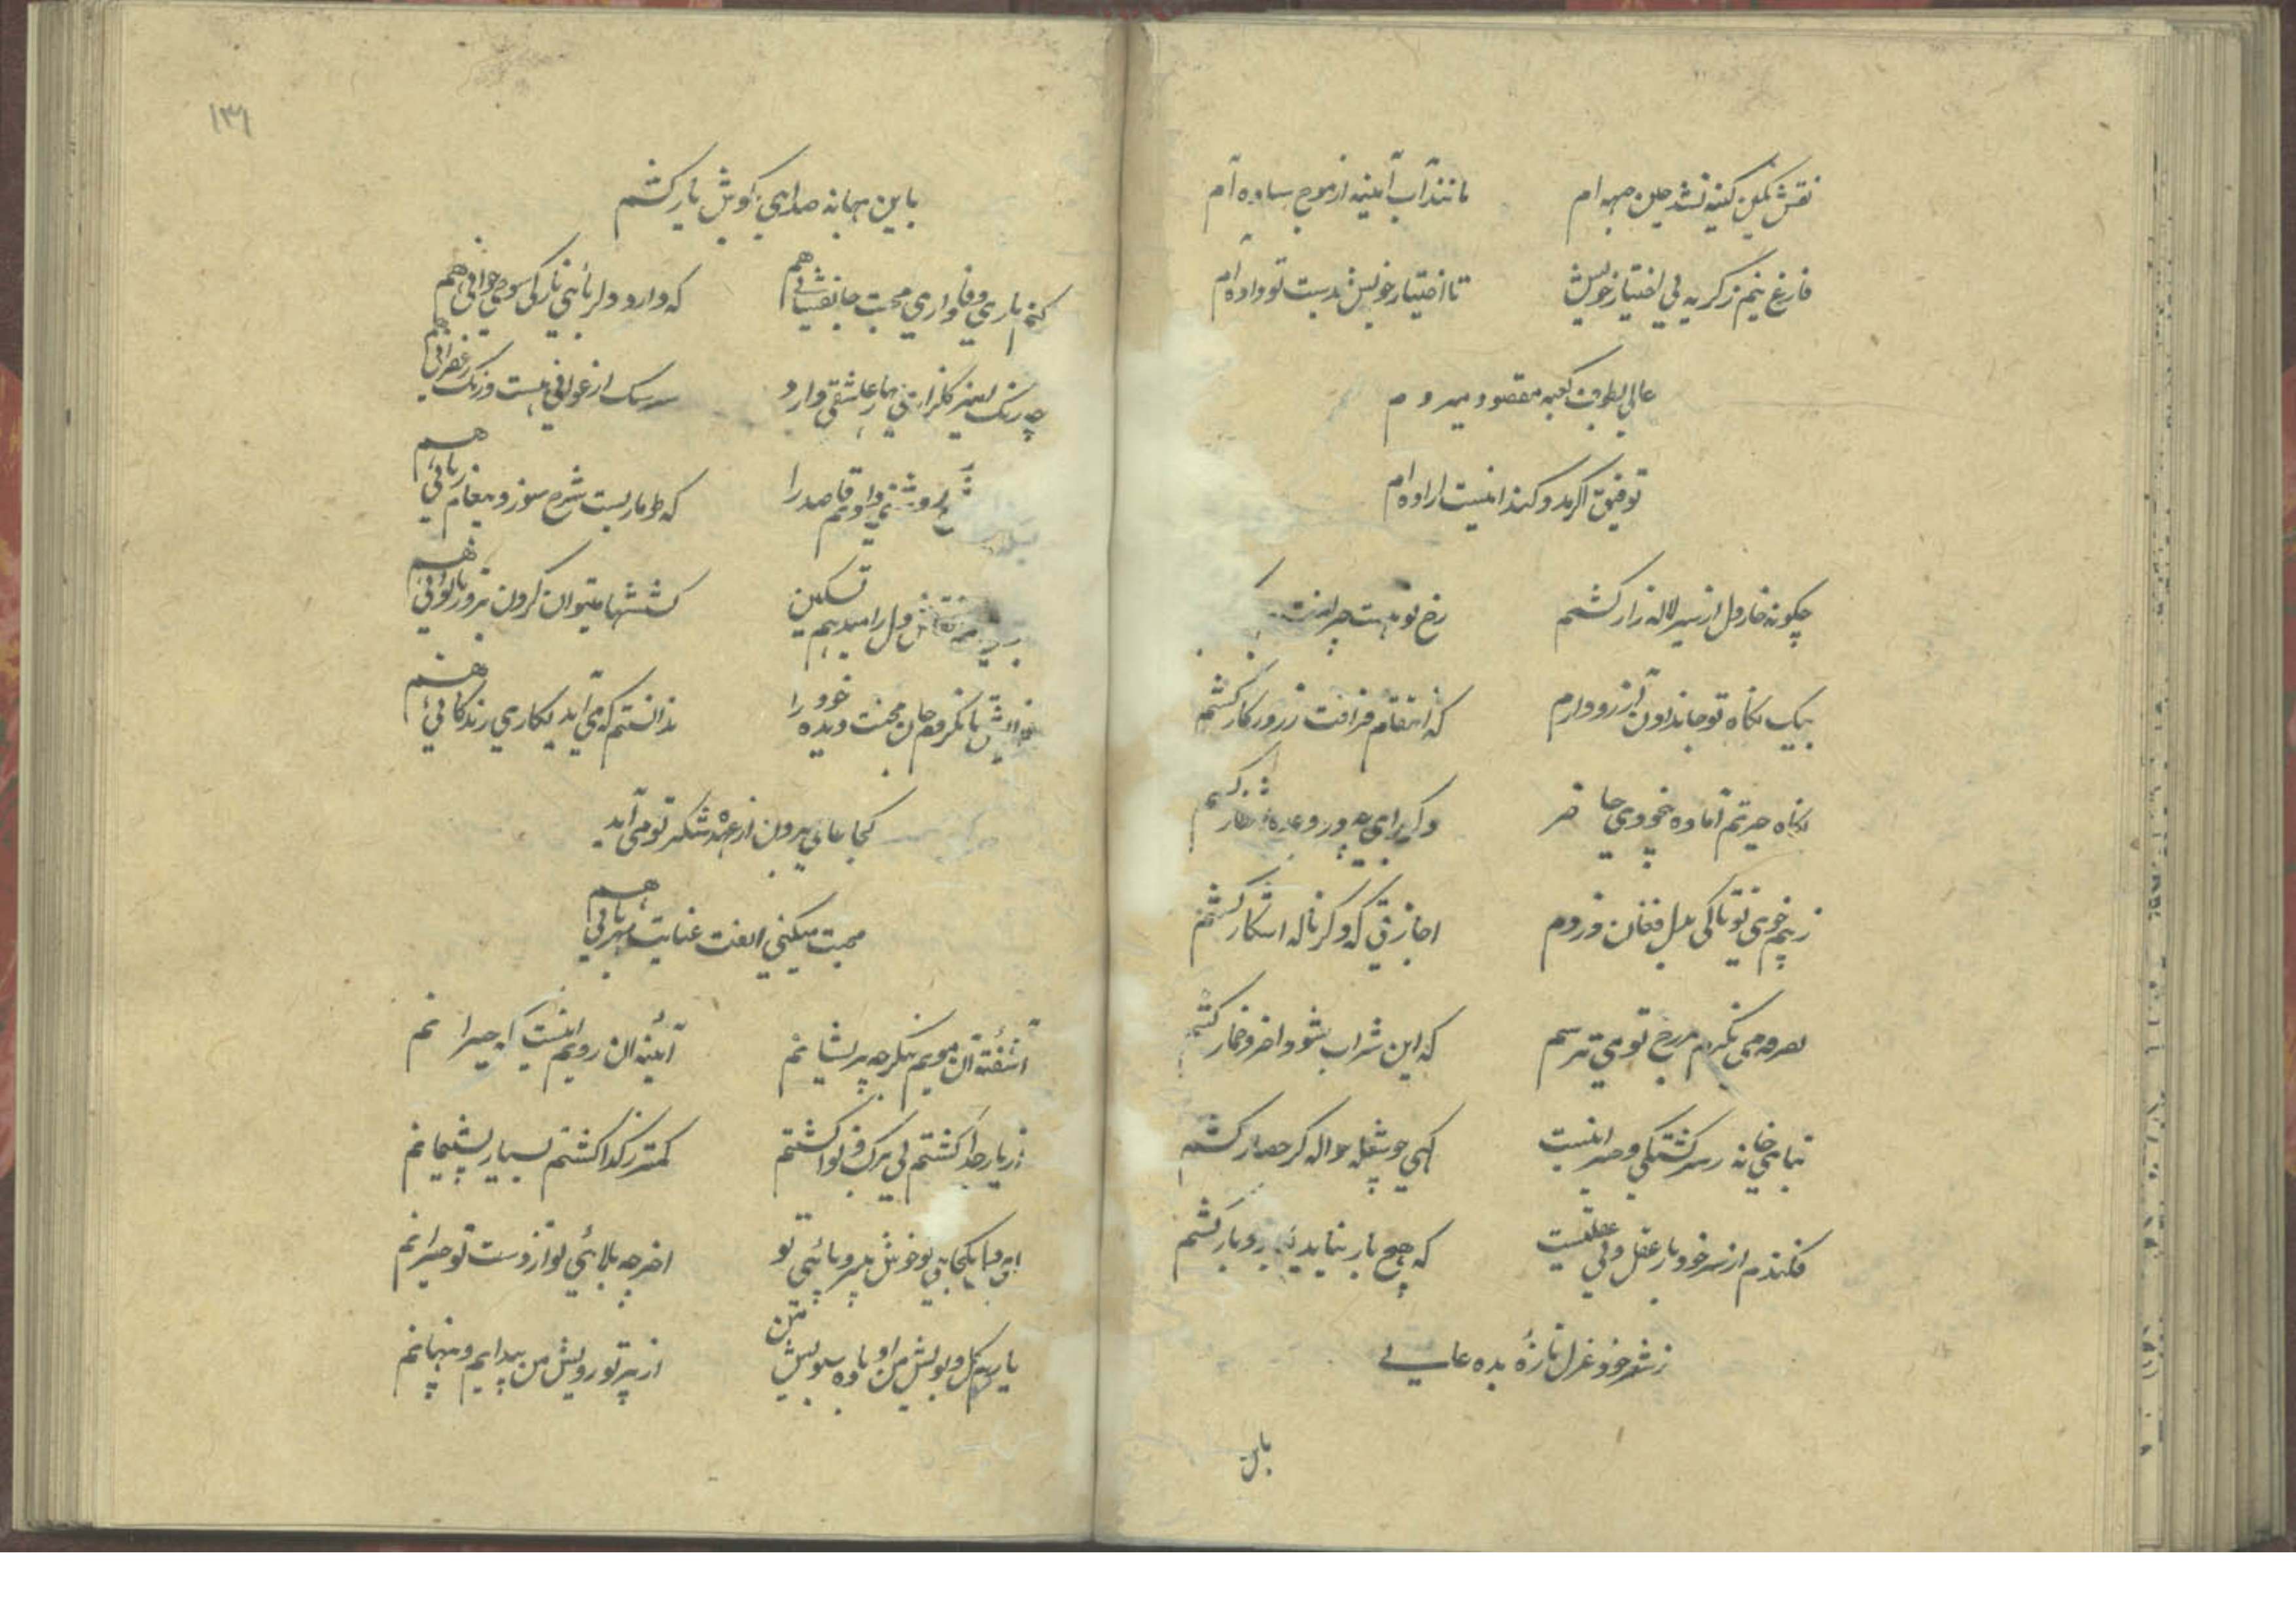 نقش نگین کینه نشد چین جبهه ام مانند آب آینه از موج ساده ام
فارغ نیم ز گریه بی اختیار خویش تا اختیار خویش بدست تو داده ام
عالی بطوف کعبه مقصود میروم
توفیق اگر مدد کند اینست اراده ام
چگونه خار دل از سیر لاله زار کشم رخ تو نیست چرا منت
بیک نگاه تو جاندادن آرزو دارم که انتقام فراقت ز روزگار کشم
نگاه حیرتم آماده بیخودی حاضر دگر برای چه درد
ز بیم خوی تو تا کی بدل فغان دزدم اجازتی که دگر ناله آشکار کشم
بصرفه می نگرم بر رخ تو می ترسم که این شراب شود آخر و خمار کشم
بنای خانه سرگشتگی و صبر اینست گهی چو شعله جواله گر حصار کشم
فکندم از سر خود بار عقل و بی عقلیست که هیچ بار نباید
ز شعر خود غزل تازه بده عالی
باین
۱۳۱
باین بهانه صدای بگوش یار کشم
کنم یاری وفاداری محبت جانفشانی هم که دارد دلربائی نازکی شوخی جوانی هم
چه رنگ آمیز گلزاری بهار عاشقی دارد سرشک ارغوانی هست و رنگ زعفرانی هم
قاصد را که طوماریست شرح سوز و پیغام زبانی هم
دل را میدهم تسکین کششها میتوان کردن بزور ناتوانی هم
جان محنت دیده خود را ندانستم که می آید بکاری زندگانی هم
کجا عالی برون از عهده شکر تو می آید
محبت میکنی الفت عنایت مهربانی هم
آشفته آن مویم بنگر چه پریشانم آیینه آن رویم اینست که حیرانم
از یار جدا گشتم بی برگ و نوا گشتم کمتر ز گدا گشتم بسیار پشیمانم
تو آخر چه بلائی تو از دست تو حیرانم
یاریم گل و بویش من او باده سبویش من از پرتو رویش من پیدایم و پنهانم